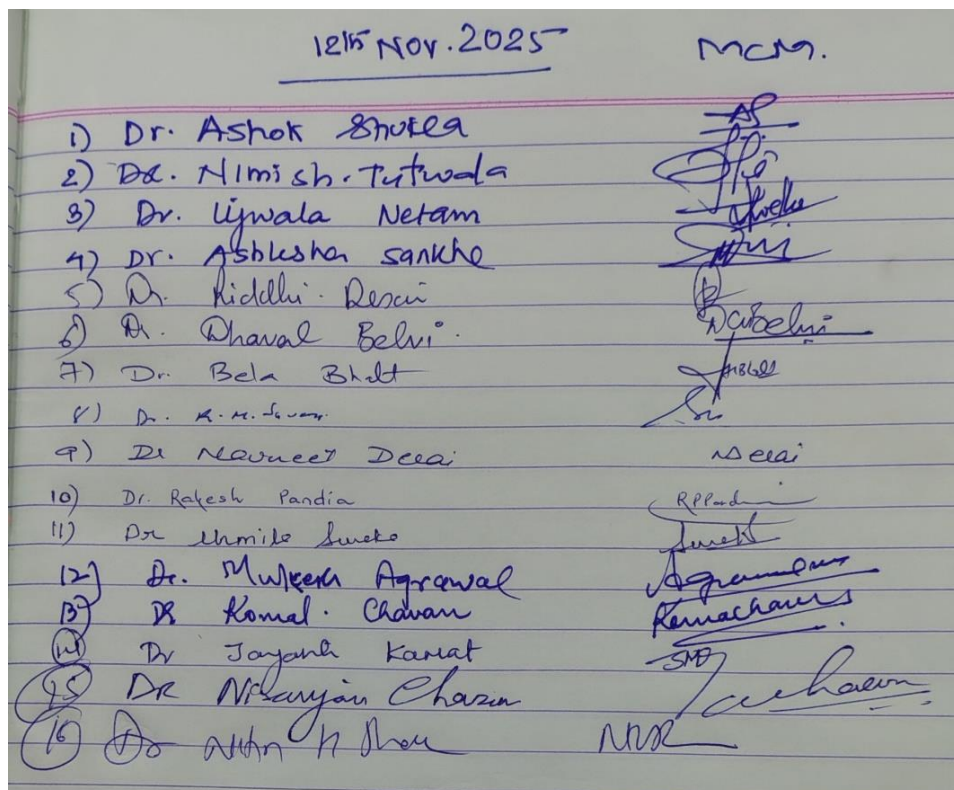 12th Nov. 2025 MCM.
1) Dr. Ashok Shukla AS
2) Dr. Nimish. Tutwala
3) Dr. Ujwala Netam
4) Dr. Ashlesha Sankhe
5) Dr. Riddhi. Desai
6) Dr. Dhaval Belvi. Belvi
7) Dr. Bela Bhatt
8) Dr.
9) Dr Navneet Desai Desai
10) Dr. Rakesh Pandia
11) Dr Urmila Sureka
12) Dr. Mukesh Agrawal
13) Dr Komal. Chavan
14) Dr Jayant Kamat
15) Dr Niranjan Chavan
16) Dr Nitin